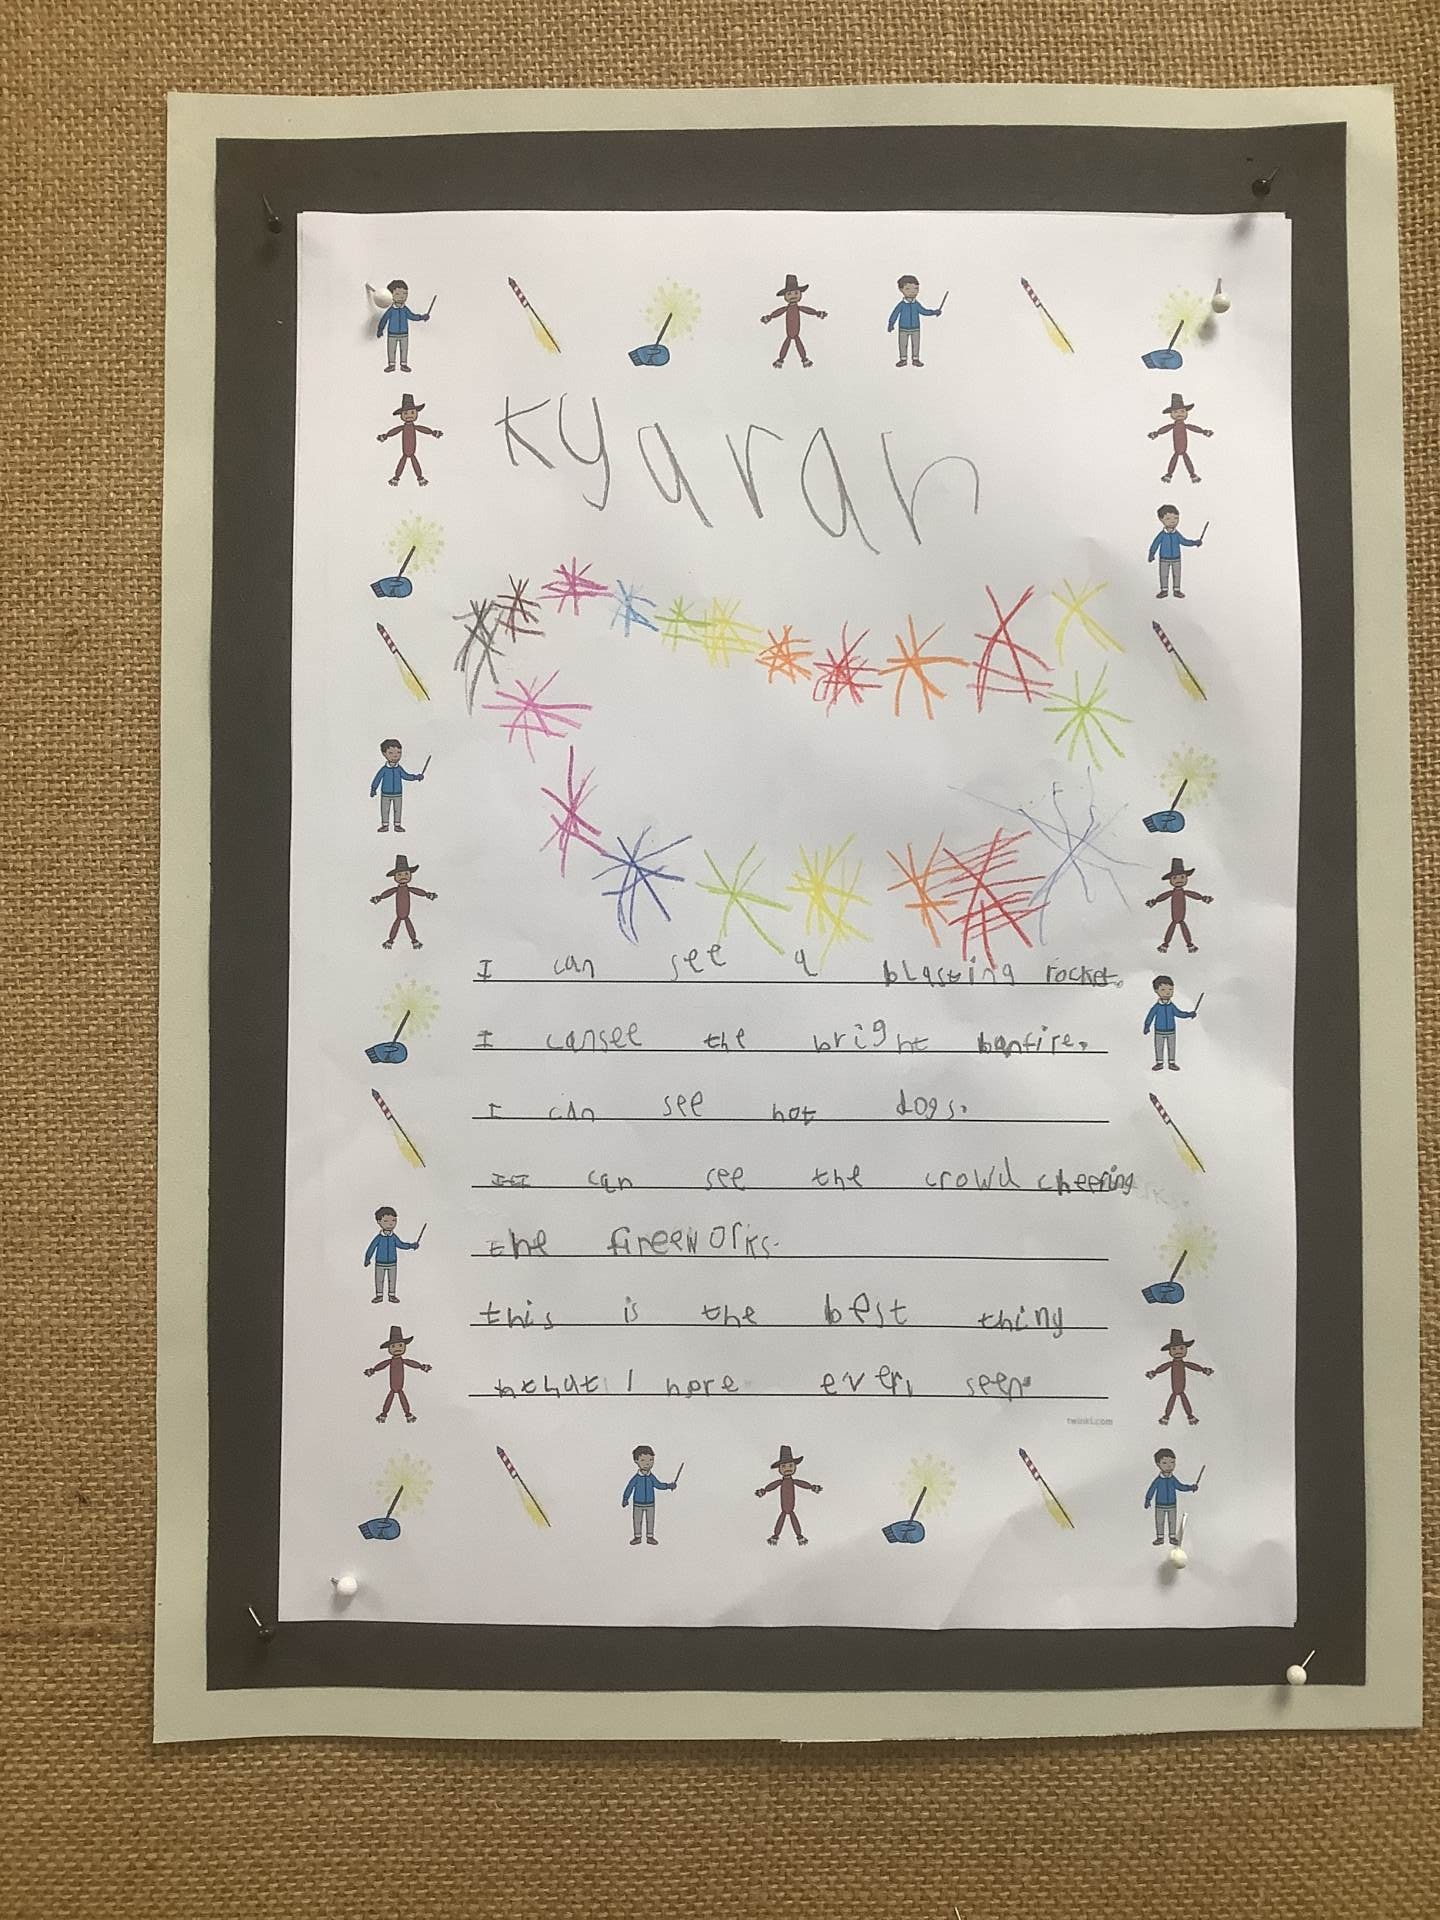 Kyaran
I can see a blasting rocket.
I cansee the bright bonfire.
I can see hot dogs.
II can see the crowd cheering
the fireeworks.
this is the best thing
that I hare ever, seen.
twinkl.com